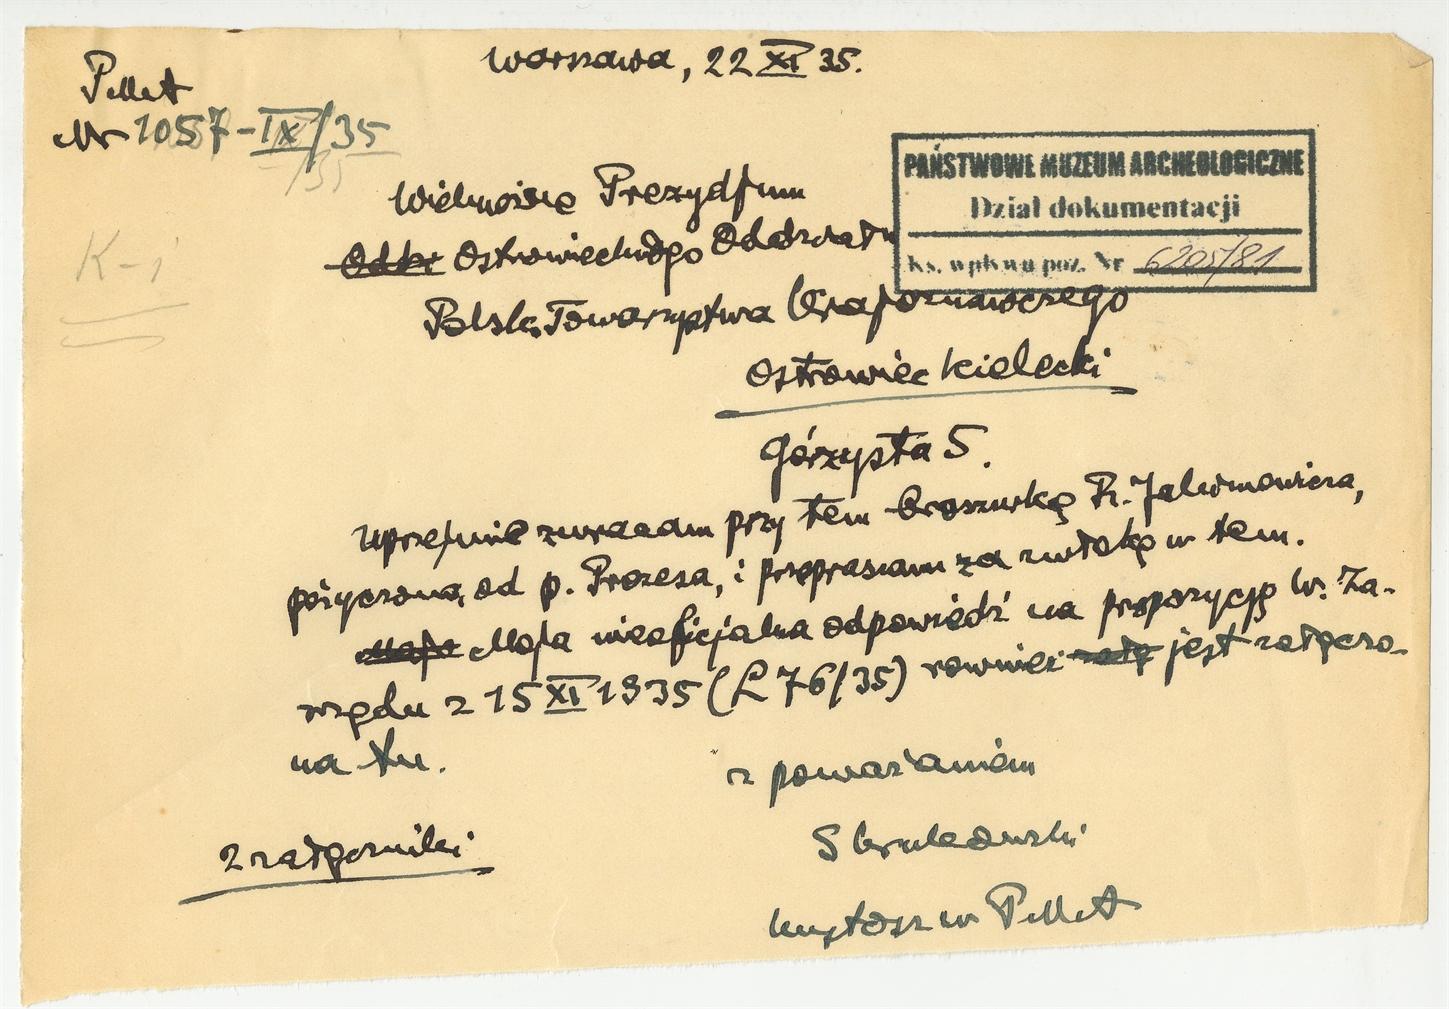 Warszawa, 22 XI 35.
PMA
Nr 1057-IX/35
K-i
PAŃSTWOWE MUZEUM ARCHEOLOGICZNE
Dział dokumentacji
Ks. wpływu poz. Nr 6205/81
Wielmożne Prezydjum
Ostrowieckiego Oddziału
Polsk. Towarzystwa Krajoznawczego
Ostrowiec Kielecki
Górzysta 5.
Uprzejmie zwracam przy tem broszurkę
pożyczoną od p. Prezesa, i przepraszam za zwłokę w tem.
Moja nieoficjalna odpowiedź na propozycję W. Za-
rządu z 15 XI 1935 (L 76/35) rownież jest załączo-
na tu.
z poważaniem
2 załączniki
S Krukowski
kustosz w PMA